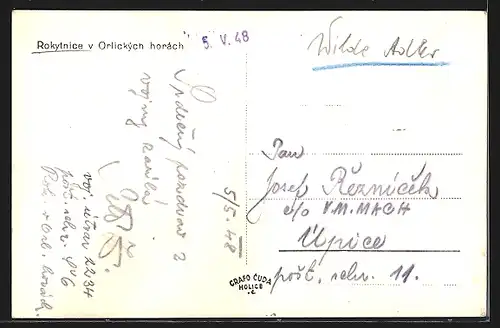 Rokytnice v Orlických horách
5. V. 48
Wilde Adler
Srdečný pozdrav z
vojny zasílá
voj. útvar 2234
pošt. schr. 
Rok. v Orl. horách.
5/5. 48
GRAFO ČUDA
HOLICE
Pan
Josef Řezníček
c/o V.M. MACH
Úpice
pošt. schr. 11.